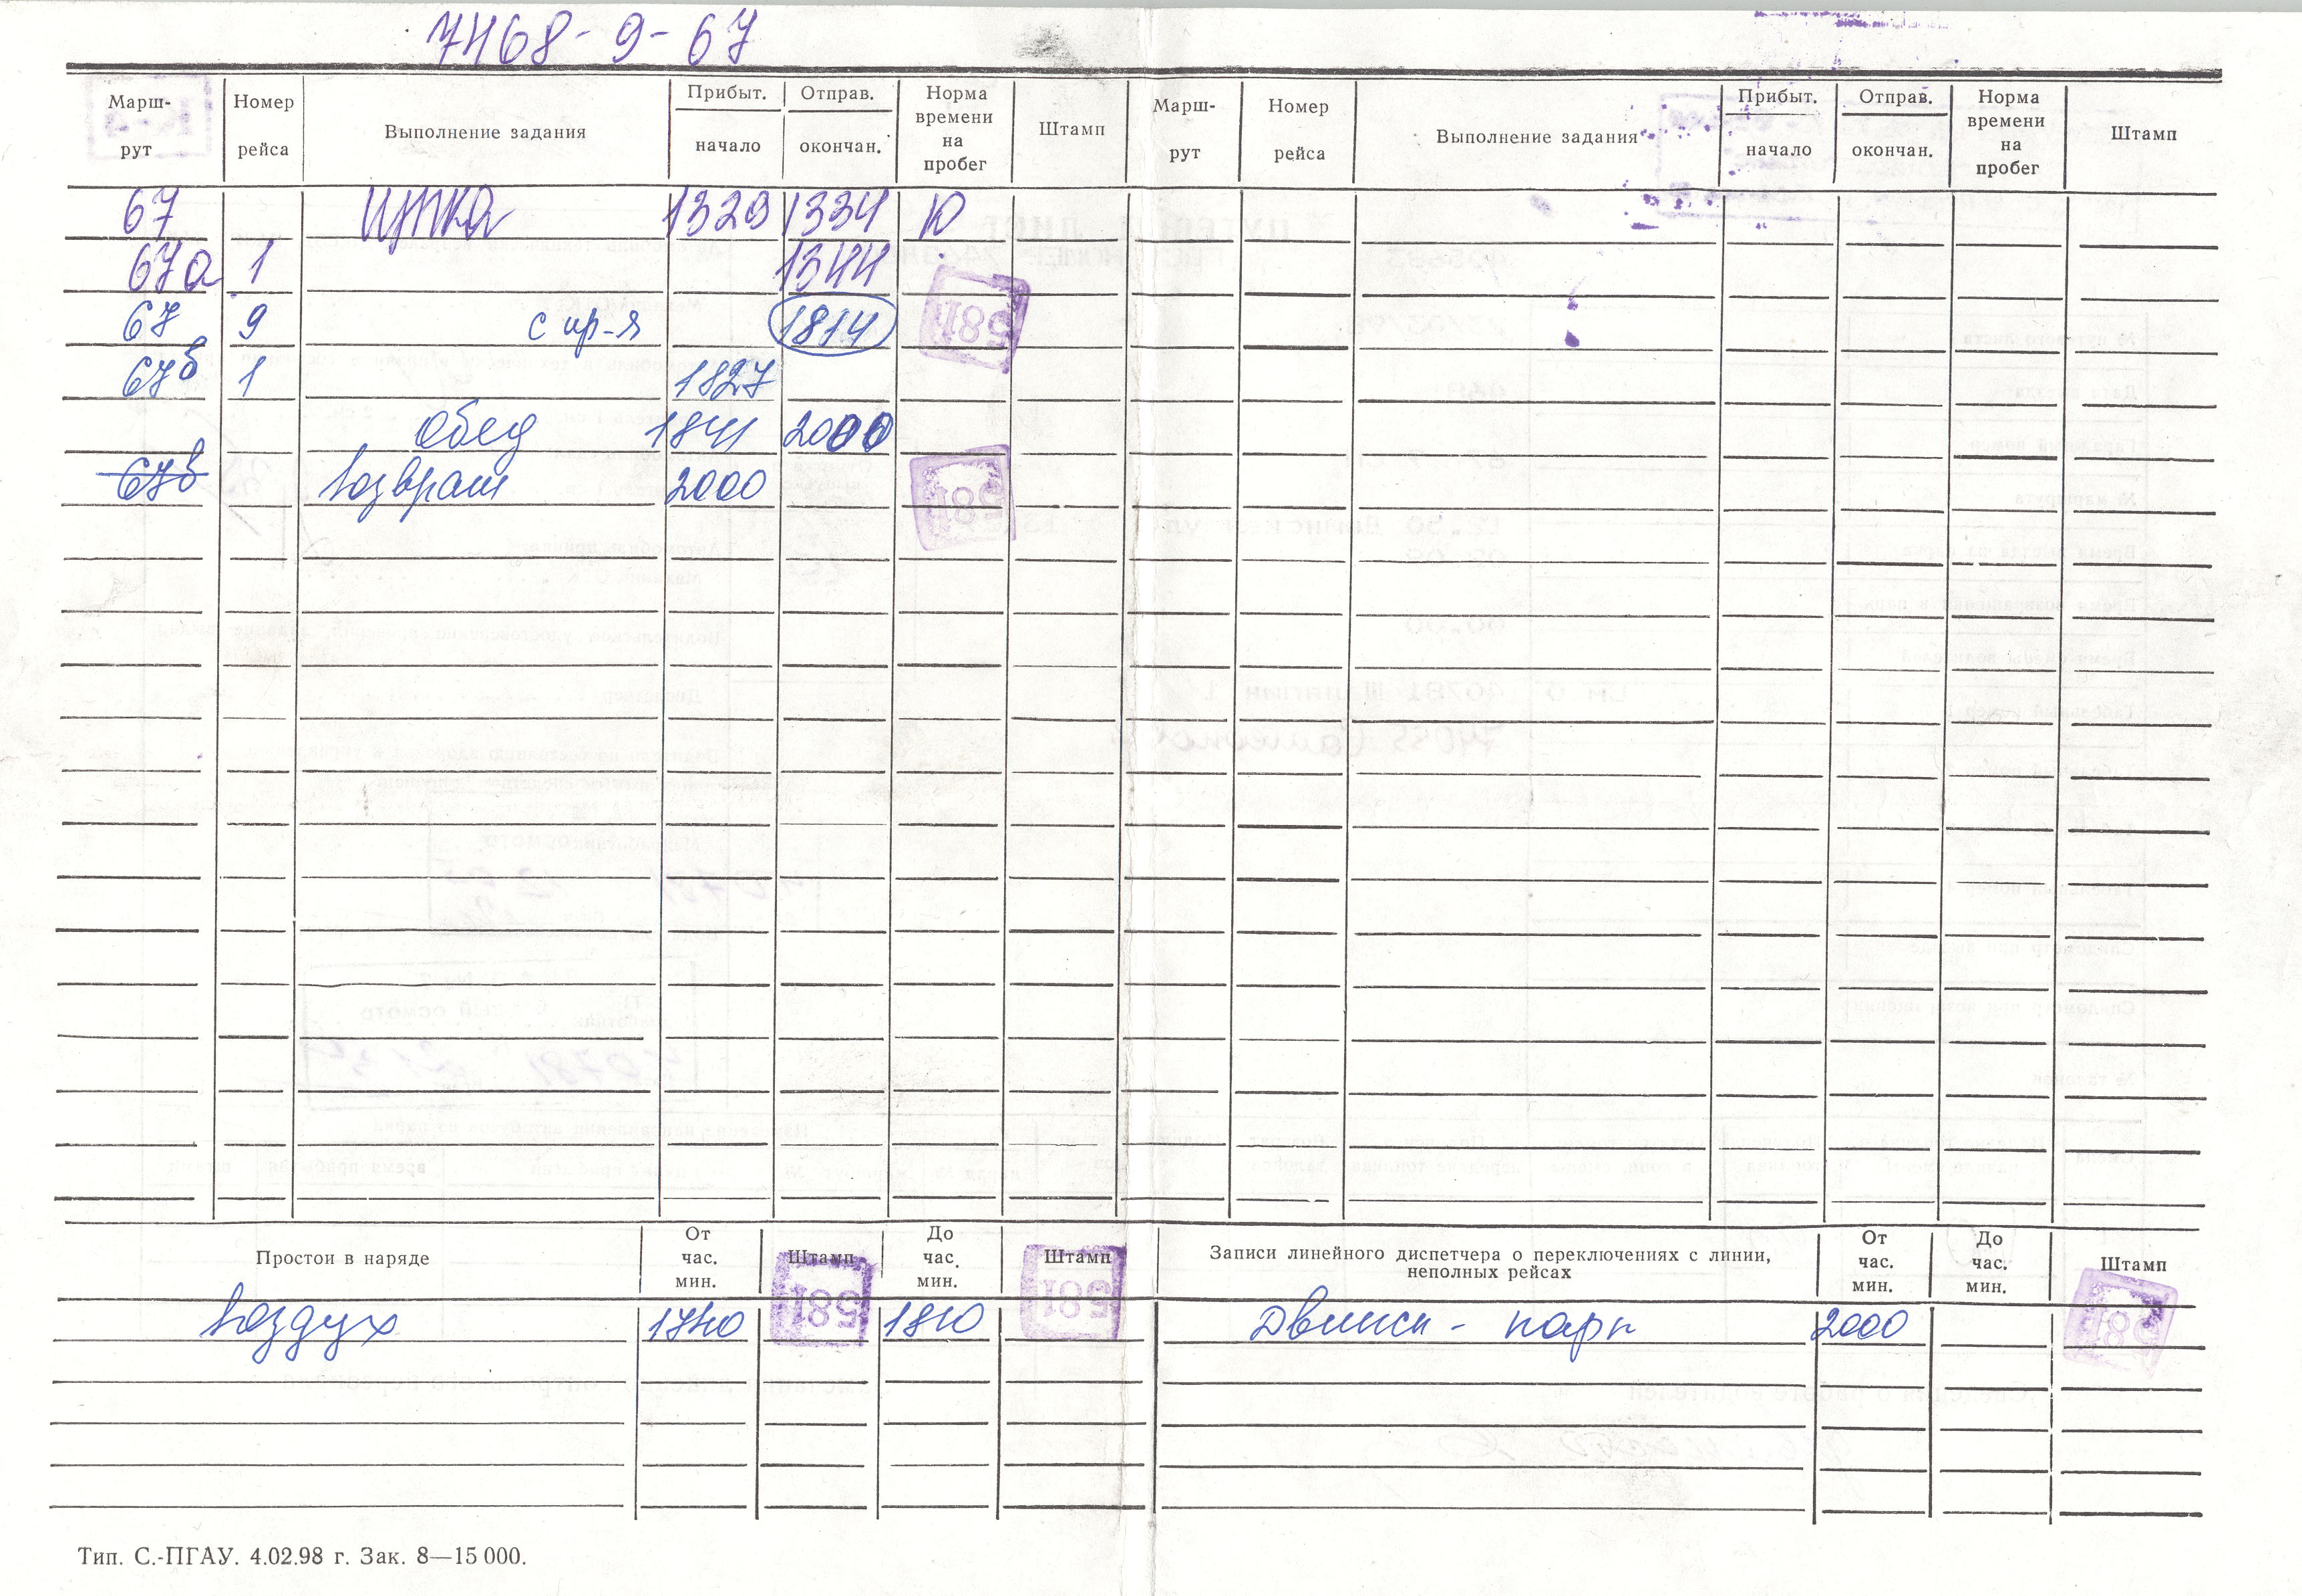 7468-9-67
Марш-рут Номер рейса Выполнение задания Прибыт. начало Отправ. окончан. Норма времени на пробег Штамп Марш-рут Номер рейса Выполнение задания Прибыт. начало Отправ. окончан. Норма времени на пробег Штамп
67 1329 1334 10
67а 1 1344
67 9 с пр-я 1814
581
67б 1 1827
Обед 1841 2000
67б возврат 2000
581
Простои в наряде От час. мин. Штамп До час. мин. Штамп Записи линейного диспетчера о переключениях с линии, неполных рейсах От час. мин. До час. мин. Штамп
воздух 1740 581 1810 581 Двинск - парк 2000 581
Тип. С.-ПГАУ. 4.02.98 г. Зак. 8—15 000.